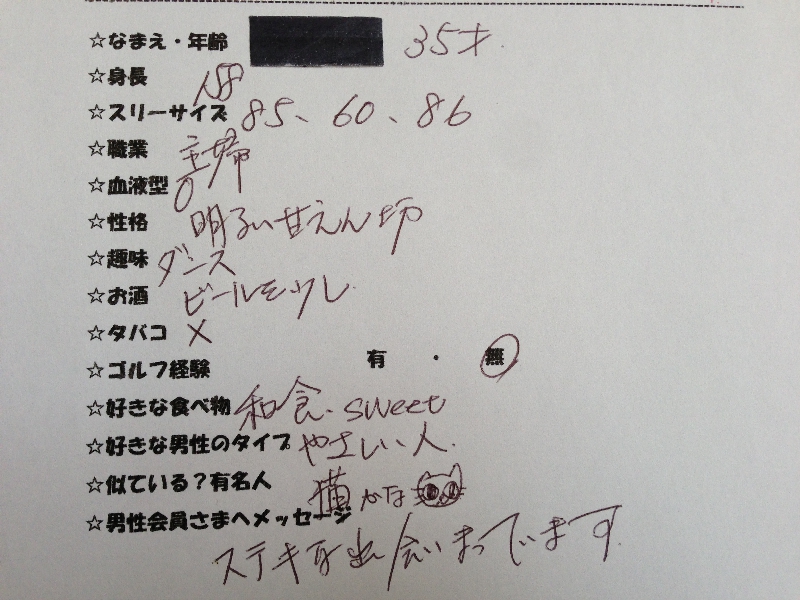 ☆なまえ・年齢 35才.
☆身長 158
☆スリーサイズ 85、60、86
☆職業 主婦
☆血液型 O
☆性格 明るい甘えん坊
☆趣味 ダンス
☆お酒 ビールを少し
☆タバコ ×
☆ゴルフ経験 有 ・ 無
☆好きな食べ物 和食、sweet
☆好きな男性のタイプ やさしい人.
☆似ている?有名人 猫かな
☆男性会員さまへメッセージ
ステキな出会いまってます.